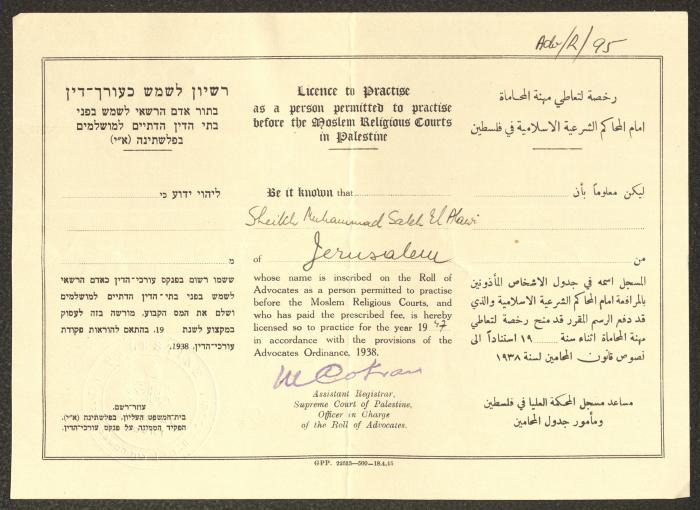 Adv/R/95
רשיון לשמש כעורך-דין
בתור אדם הרשאי לשמש בפני
בתי הדין הדתיים למושלמים
בפלשתינה (א״י)
ליהוי ידוע כי
מ
ששמו רשום בפנקס עורכי-הדין כאדם הרשאי
לשמש בפני בתי-הדין הדתיים למושלמים
ושלם את המס הקבוע, מורשה בזה לעסוק
במקצוע לשנת 19 בהתאם להוראות פקודת
עורכי-הדין, 1938.
עוזר-רשם,
בית-המשפט העליון, בפלשתינה (א״י).
הפקיד הממונה על פנקס עורכי-הדין.
Licence to Practise
as a person permitted to practise
before the Moslem Religious Courts
in Palestine
Be it known that
Sheikh Muhammad Saleh El Alawi
of Jerusalem
whose name is inscribed on the Roll of
Advocates as a person permitted to practise
before the Moslem Religious Courts, and
who has paid the prescribed fee, is hereby
licensed so to practise for the year 1947
in accordance with the provisions of the
Advocates Ordinance, 1938.
Assistant Registrar,
Supreme Court of Palestine,
Officer in Charge
of the Roll of Advocates.
رخصة لتعاطي مهنة المحاماة
امام المحاكم الشرعية الاسلامية في فلسطين
ليكن معلوماً بأن
من
المسجل اسمه في جدول الاشخاص المأذونين
بالمرافعة امام المحاكم الشرعية الاسلامية والذي
قد دفع الرسم المقرر قد منح رخصة لتعاطي
مهنة المحاماة اثناء سنة ١٩ استناداً الى
نصوص قانون المحامين لسنة ١٩٣٨
مساعد مسجل المحكمة العليا في فلسطين
ومأمور جدول المحامين
GPP. 22525—500—18.4.45